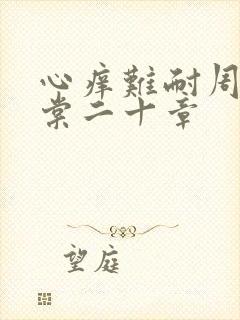 心癢難耐周
棠二十章
望庭